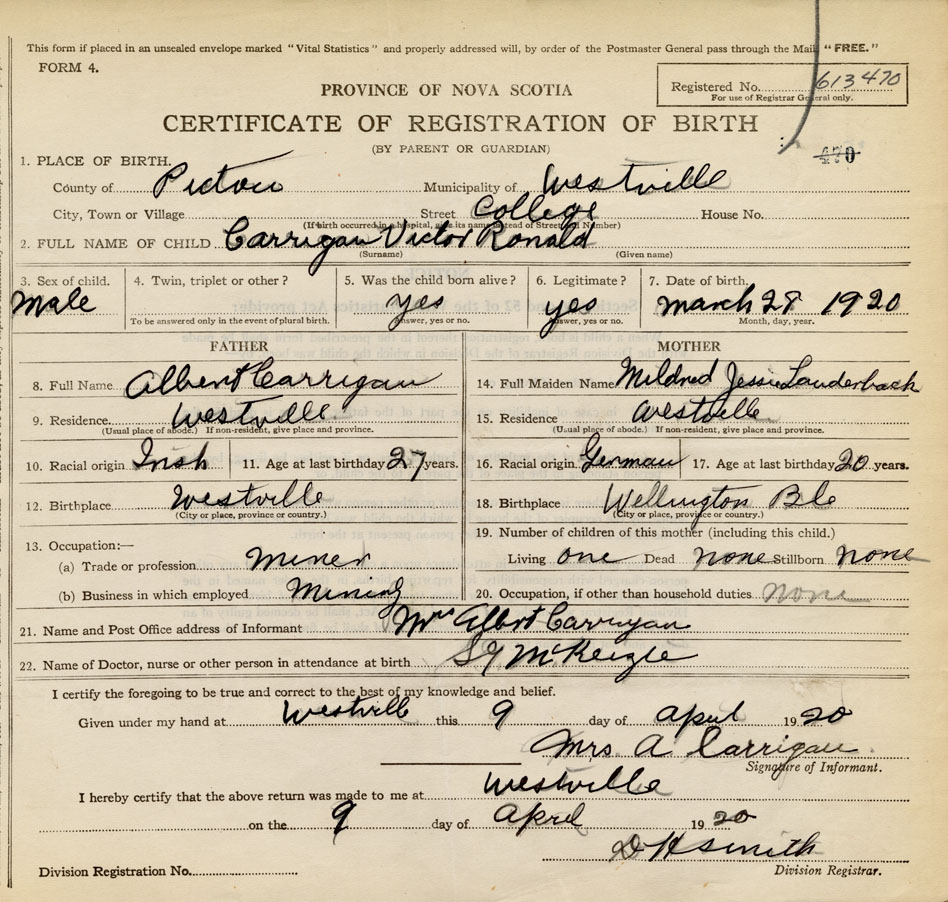 This form if placed in an unsealed envelope marked "Vital Statistics" and properly addressed will, by order of the Postmaster General pass through the Mail "FREE."
FORM 4.
Registered No. 613470
For use of Registrar General only.
PROVINCE OF NOVA SCOTIA
CERTIFICATE OF REGISTRATION OF BIRTH
(BY PARENT OR GUARDIAN)
470
1. PLACE OF BIRTH.
County of Pictou Municipality of Westville
City, Town or Village Street College House No.
(If birth occurred in a hospital, give its name instead of Street and Number)
2. FULL NAME OF CHILD Carrigan Victor Ronald
(Surname) (Given name)
3. Sex of child. 4. Twin, triplet or other? 5. Was the child born alive? 6. Legitimate? 7. Date of birth.
Male yes yes March 28 1920
To be answered only in the event of plural birth. Answer, yes or no. Answer, yes or no. Month, day, year.
FATHER MOTHER
8. Full Name Albert Carrigan 14. Full Maiden Name Mildred Jessie Lauderback
9. Residence Westville 15. Residence Westville
(Usual place of abode.) If non-resident, give place and province. (Usual place of abode.) If non-resident, give place and province.
10. Racial origin Irish 11. Age at last birthday 27 years. 16. Racial origin German 17. Age at last birthday 20 years.
12. Birthplace Westville 18. Birthplace Wellington B C
(City or place, province or country.) (City or place, province or country.)
13. Occupation:— 19. Number of children of this mother (including this child.)
(a) Trade or profession Miner Living one Dead none Stillborn none
(b) Business in which employed Mining 20. Occupation, if other than household duties. none
21. Name and Post Office address of Informant Mrs Albert Carrigan
22. Name of Doctor, nurse or other person in attendance at birth McKenzie
I certify the foregoing to be true and correct to the best of my knowledge and belief.
Given under my hand at Westville this 9 day of April 1920
Mrs. A Carrigan
Signature of Informant.
I hereby certify that the above return was made to me at Westville
on the 9 day of April 1920
D H Smith
Division Registration No. Division Registrar.